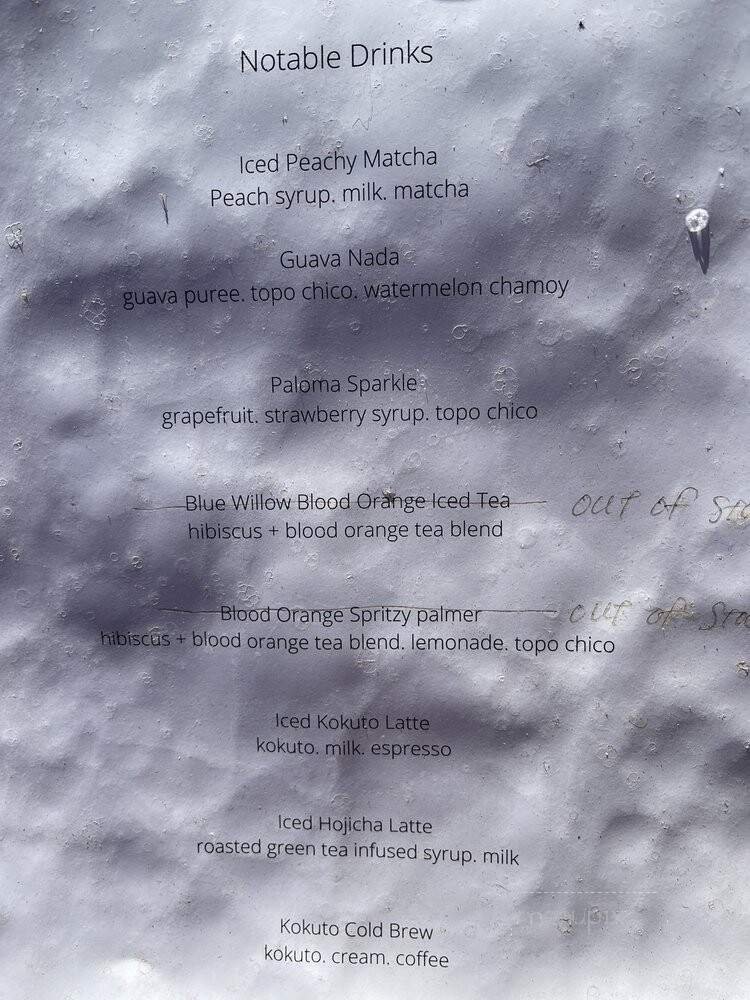 Notable Drinks
Iced Peachy Matcha
Peach syrup. milk. matcha
Guava Nada
guava puree. topo chico. watermelon chamoy
Paloma Sparkle
grapefruit. strawberry syrup. topo chico
Blue Willow Blood Orange Iced Tea OUT OF STO
hibiscus + blood orange tea blend
Blood Orange Spritzy palmer OUT OF STO
hibiscus + blood orange tea blend. lemonade. topo chico
Iced Kokuto Latte
kokuto. milk. espresso
Iced Hojicha Latte
roasted green tea infused syrup. milk
Kokuto Cold Brew
kokuto. cream. coffee